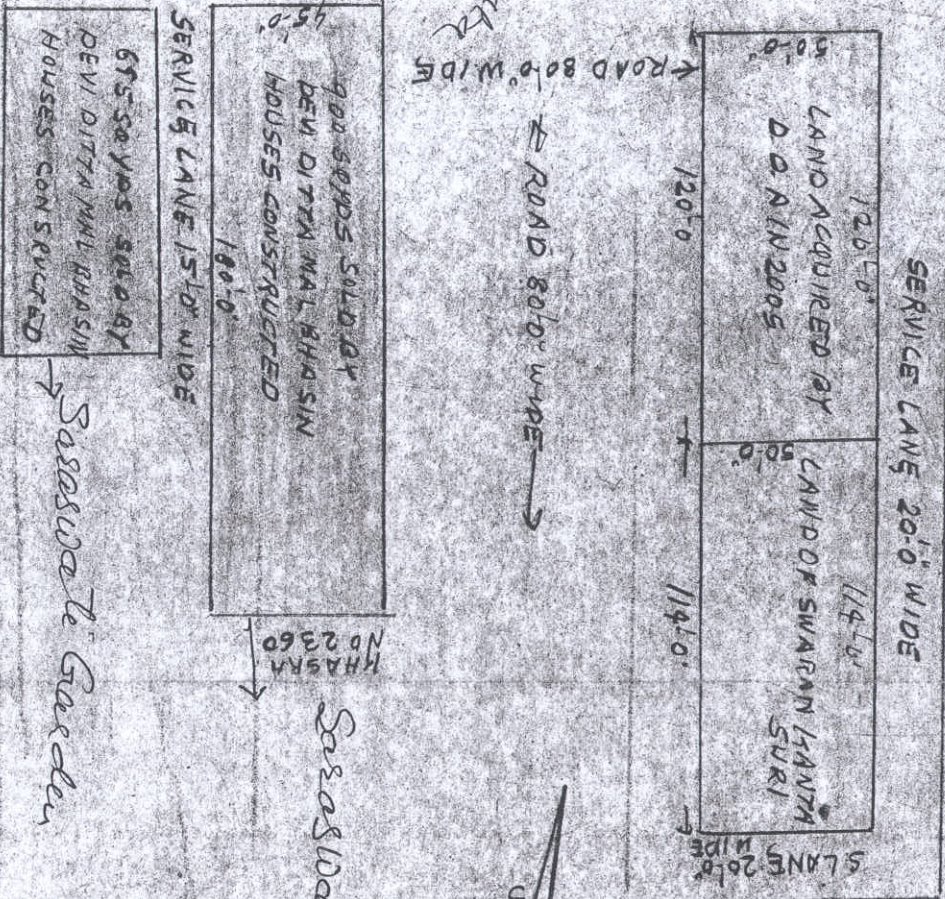 SERVICE LANE 20'-0" WIDE
120'-0"
50'-0"
LAND ACQUIRED BY
DDA IN 2005
120'-0
114'-0"
50'-0"
LAND OF SWARAN KANTA
SURI
114'-0"
S LANE 20'-0"
WIDE
ROAD 80'-0" WIDE
ROAD 80'-0" WIDE
45'-0"
900 SQ YDS SOLD BY
DEVI DITTA MAL BHASIN
HOUSES CONSTRUCTED
180'-0"
KHASRA
NO 2360
SERVICE LANE 15'-0" WIDE
SOLD BY
DEVI DITTA MAL BHASIN
HOUSES CONSRUCTED
Saraswati Garden
Saraswa